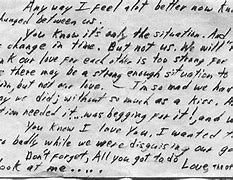 Any way I feel alot better now know
hanged between us.
You know it's only the situation. And
change in time. But not us. We will
nk our love for each other is too strong for
s there may be a strong enough situation to
m, but not our love. I'm so mad we had
y we did; without so much as a kiss. A
tion needed it... was begging for it! and w
You know I love You, I wanted t
so badly while we were disguising our go
Don't forgot, All you got to do
ook at me..... Love,